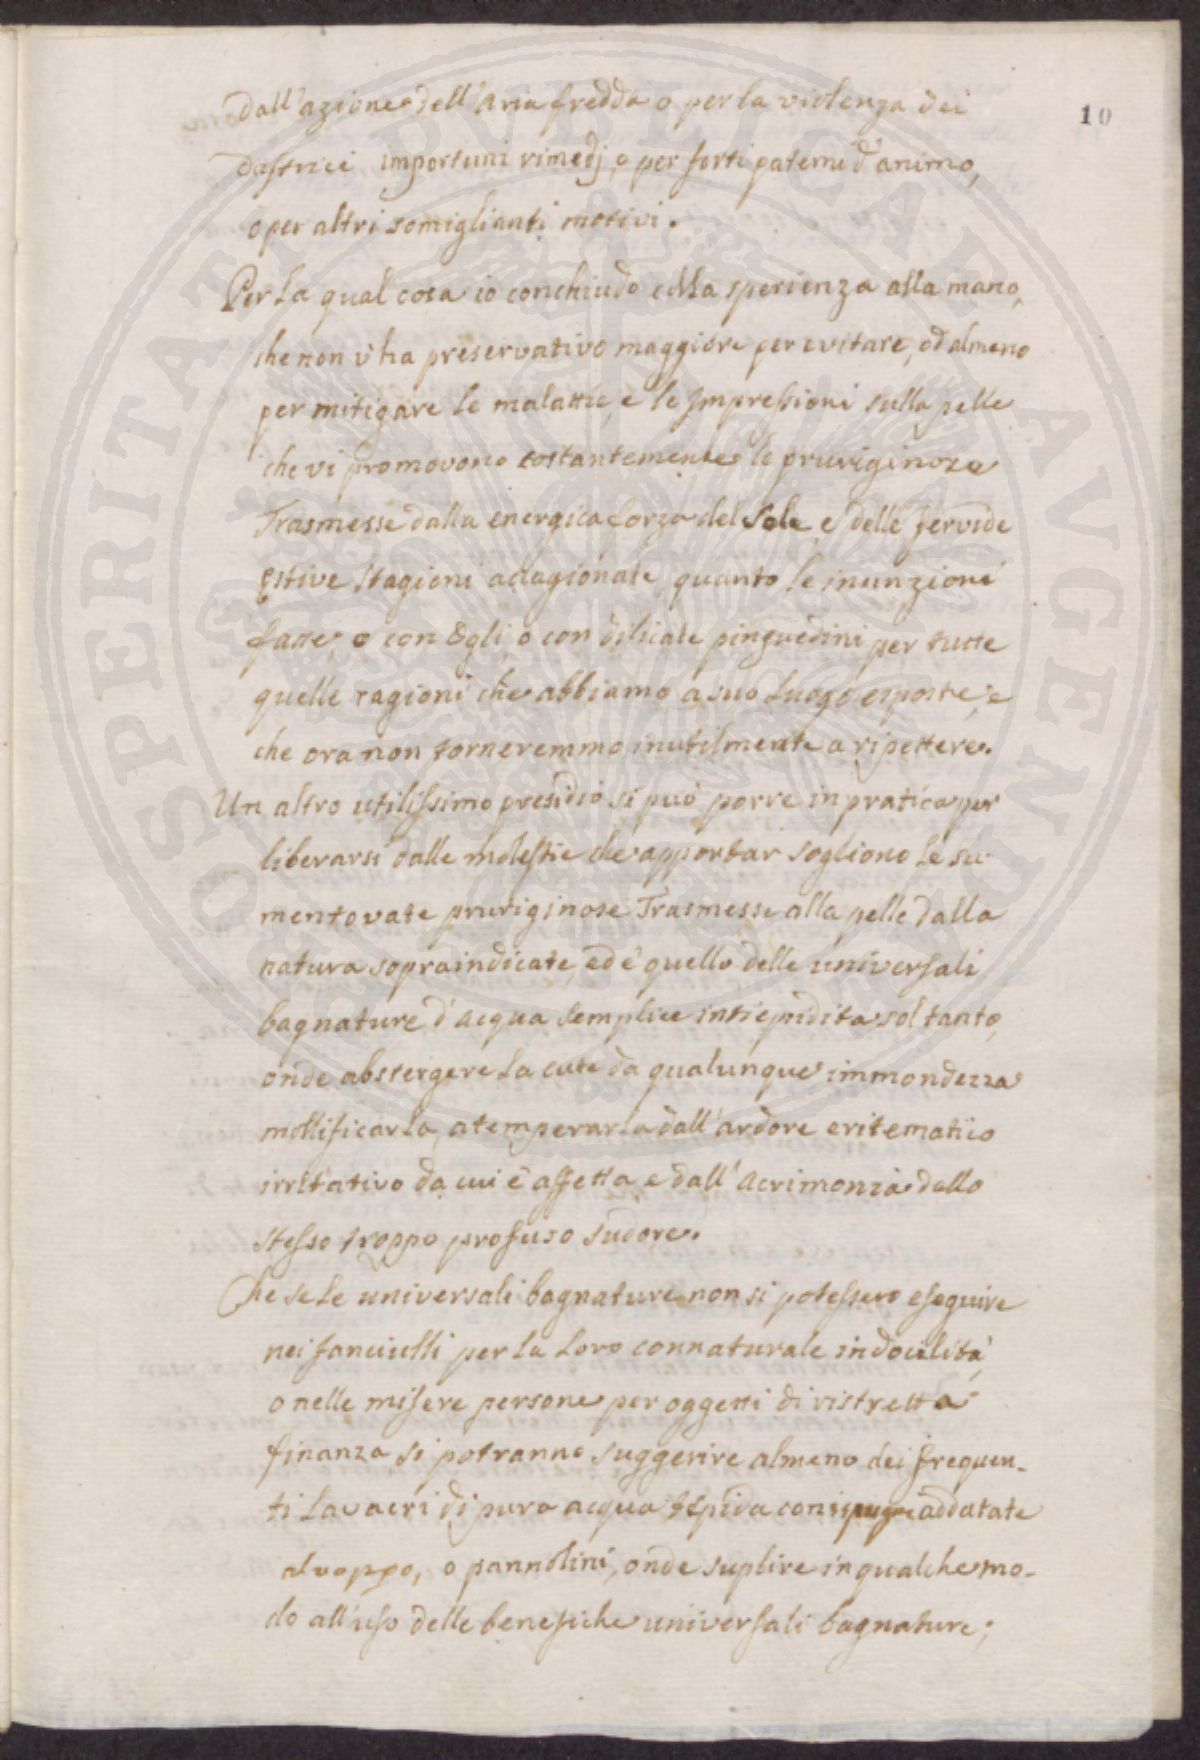 10
dall'azione dell'Aria fredda o per la violenza dei
dastrici importuni rimedj, o per forti patemi d'animo,
o per altri somiglianti motivi.
Per la qual cosa io conchiudo colla sperienza alla mano,
che non v'ha preservativo maggiore per evitare, od almeno
per mitigare le malattie, e le Impressioni sulla pelle
che vi promovono costantemente le pruriginose
Trasmesse dalla energica forza del Sole e delle fervide
estive Stagioni accagionate, quanto le inunzioni
fatte, o con Ogli, o con dilicate pinguedini per tutte
quelle ragioni che abbiamo a suo Luogo esposte, e
che ora non torneremmo inutilmente a ripettere.
Un altro utilissimo presidio si può porre in pratica per
liberarsi dalle molestie che apportar sogliono le su
mentovate pruriginose Trasmesse alla pelle dalla
natura sopraindicate, ed è quello delle universali
bagnature d'acqua semplice intiepidita soltanto,
onde abstergere la cute da qualunque immondezza
mollificarla, atemperarla dall'ardore eritematico
irritativo da cui è affetta e dall'Acrimonia dello
stesso troppo profuso sudore.
Che se le universali bagnature non si potessero eseguire
nei fanciulli per la loro connaturale indocilità,
o nelle misere persone per oggetti di ristretta
finanza si potranno suggerire almeno dei frequen-
ti lavacri di pura acqua tepida con spugne addatate
al voppo, o pannolini, onde suplire in qualche mo-
do all'uso delle benefiche universali bagnature;
PROSPERITATI PVBLICAE AVGENDAE